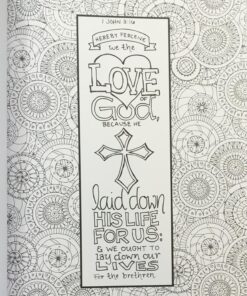 1 JOHN 3:16
HEREBY PERCEIVE
we the
LOVE
OF
God,
BECAUSE HE
laid down
HIS LIFE
FOR US:
& WE OUGHT TO
lay down our
LIVES
for the brethren.